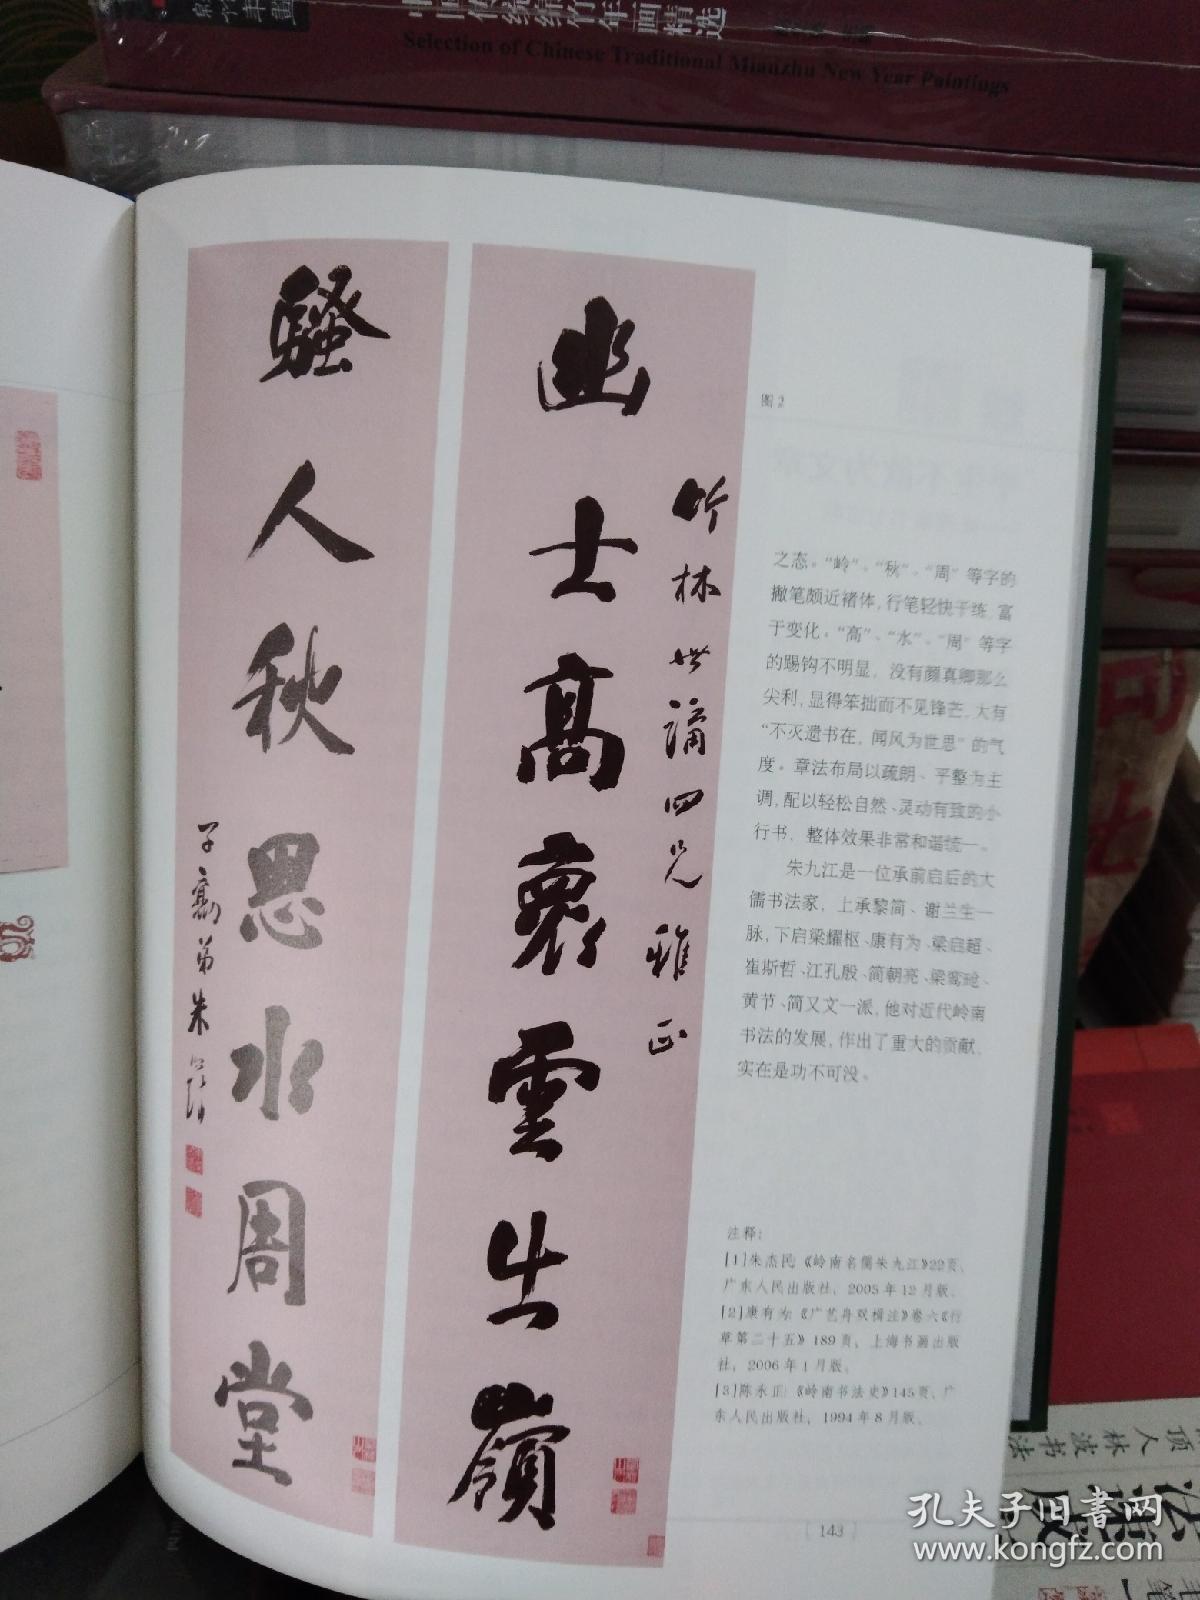 中国传统绵竹年画精选
Selection of Chinese Traditional Mianzhu New Year Paintings
幽士高裏雲生嶺
竹林世講四兄雅正
騷人秋思水周堂
子襄弟朱次琦
图2
之态。“岭”、“秋”、“周”等字的
撇笔颇近褚体，行笔轻快干练，富
于变化。“高”、“水”、“周”等字
的踢钩不明显，没有颜真卿那么
尖利，显得笨拙而不见锋芒，大有
“不灭遗书在，闻风为世思”的气
度。章法布局以疏朗、平整为主
调，配以轻松自然、灵动有致的小
行书，整体效果非常和谐统一。
朱九江是一位承前启后的大
儒书法家，上承黎简、谢兰生一
脉，下启梁耀枢、康有为、梁启超、
崔斯哲、江孔殷、简朝亮、梁鸾玱、
黄节、简又文一派，他对近代岭南
书法的发展，作出了重大的贡献，
实在是功不可没。
注释：
[1]朱杰民：《岭南名儒朱九江》22页，
广东人民出版社，2005年12月版。
[2]康有为：《广艺舟双楫注》卷六《行
草第二十五》189页，上海书画出版
社，2006年1月版。
[3]陈永正：《岭南书法史》145页，广
东人民出版社，1994年8月版。
[ 143 ]
顶人林波书法
孔夫子旧书网
www.kongfz.com